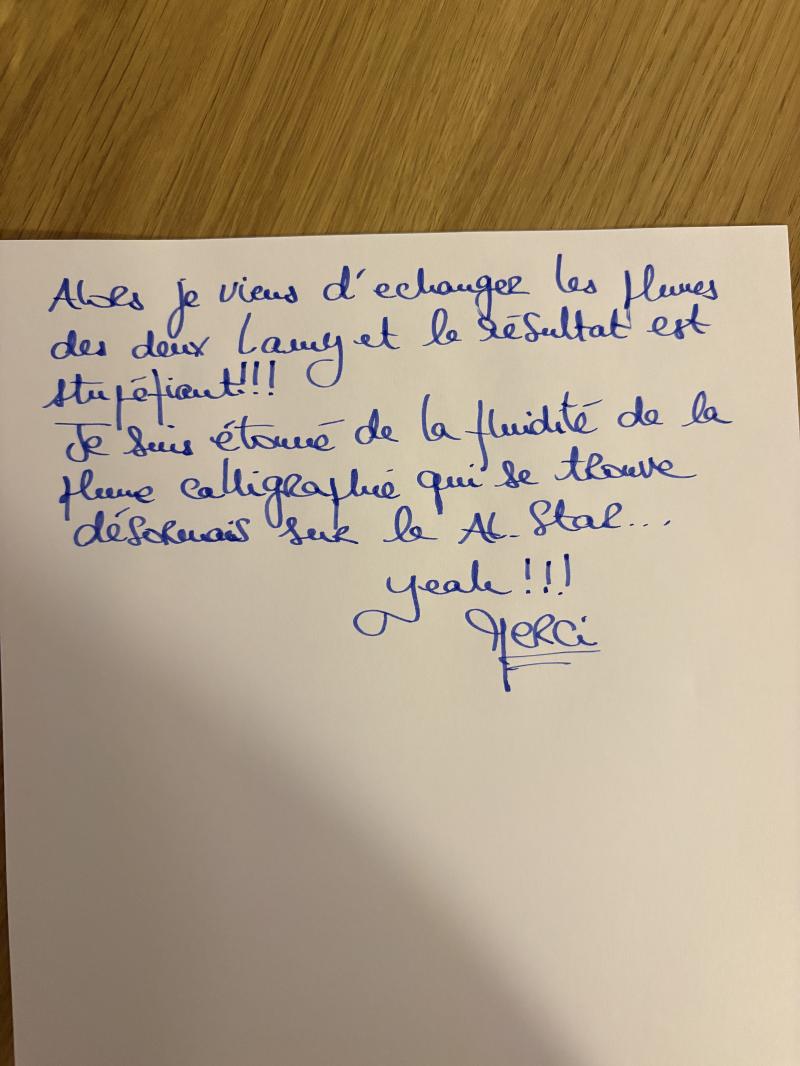 Alors je viens d'echanger les plumes
des deux Lamy et le résultat est
stupéfiant!!!
Je suis étonné de la fluidité de la
plume calligraphie qui se trouve
désormais sur le AL-Star...
yeah!!!
Merci